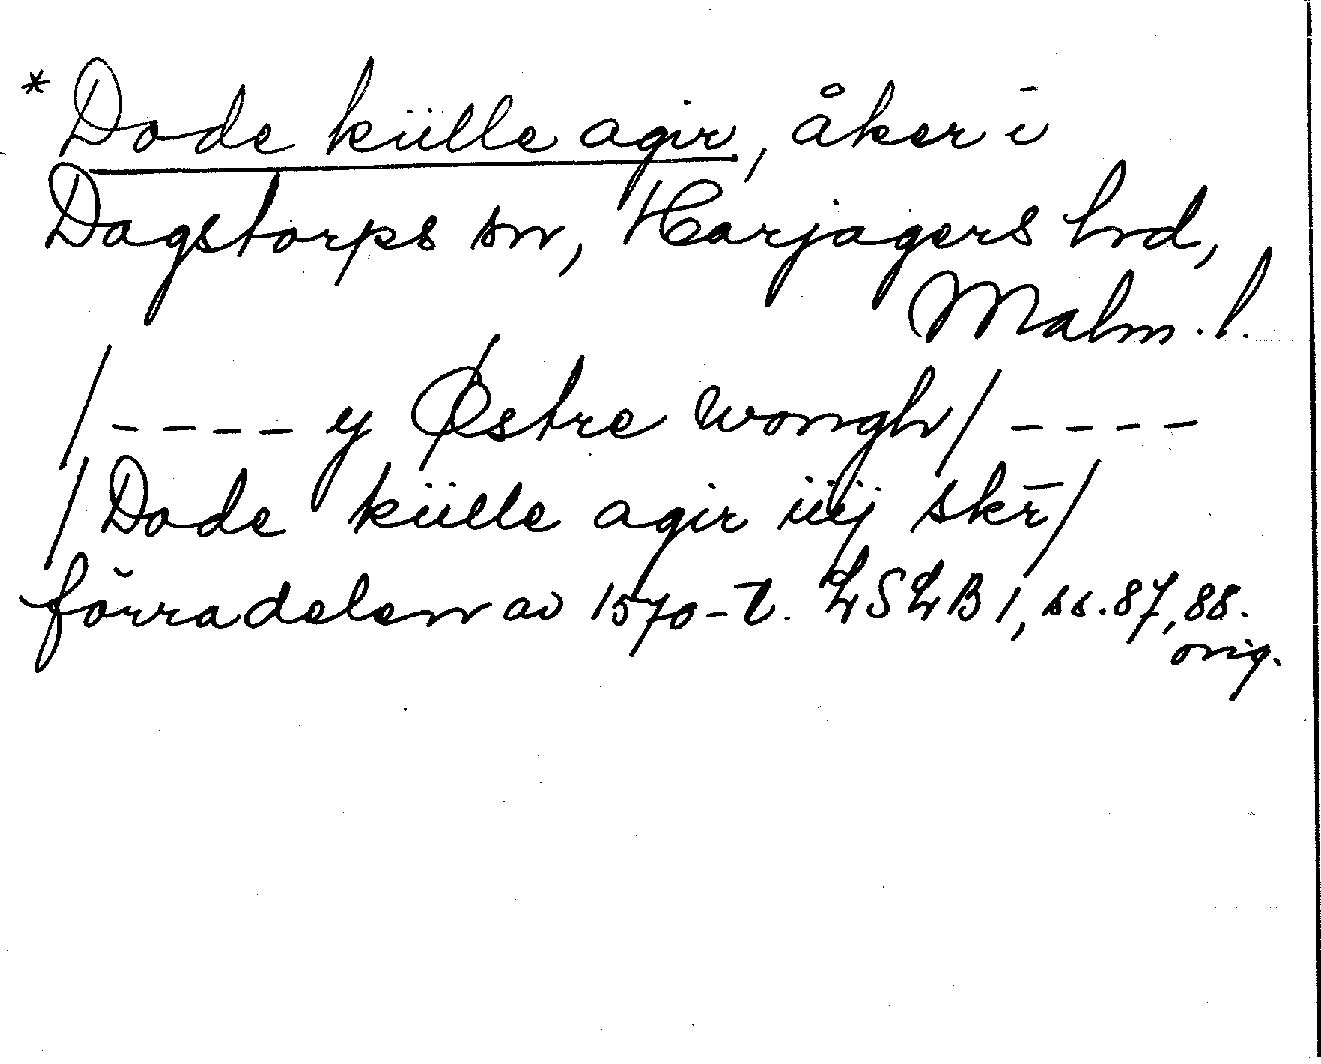 * Dode külle agir, åker i
Dagstorps sn, Harjagers hrd,
Malm. l.
/---- y Østre wongh/ ----
/Dode külle agir iiij skr̄/
förra delen av 1570-t. LSLB 1, ss. 87, 88.
orig.